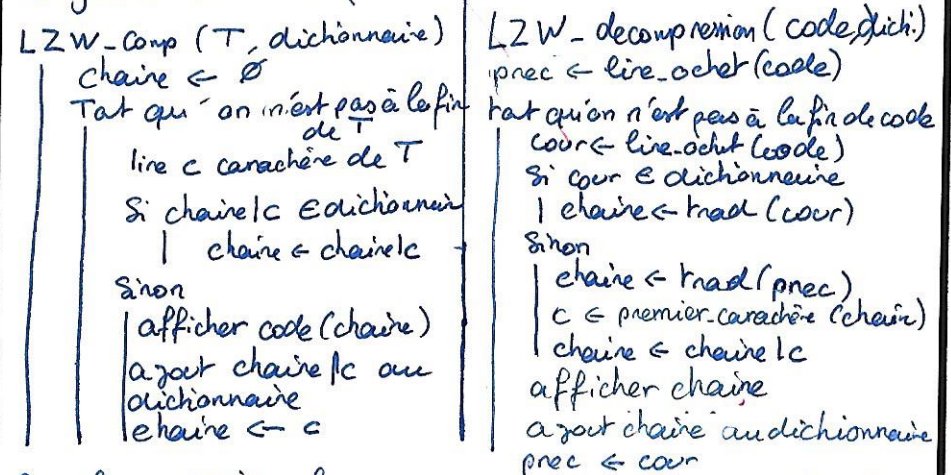 LZW_Comp (T, dichonnaire)
chaine ← ∅
Tat qu'on n'est pas à la fin
de T
lire c carachère de T
Si chaine|c ∈ dichonnair
chaine ← chaine|c
Sinon
afficher code (chaine)
ajout chaine|c au
dichonnaire
chaine ← c
LZW_decompremion (code, dich.)
prec ← lire_ochet (code)
tat qu'on n'est pas à la fin de code
cour ← lire_ochet (code)
Si cour ∈ dichionnaire
chaine ← trad (cour)
Sinon
chaine ← trad (prec)
c ← premier_carachère (chain)
chaine ← chaine|c
afficher chaine
ajout chaine au dichionnaire
prec ← cour